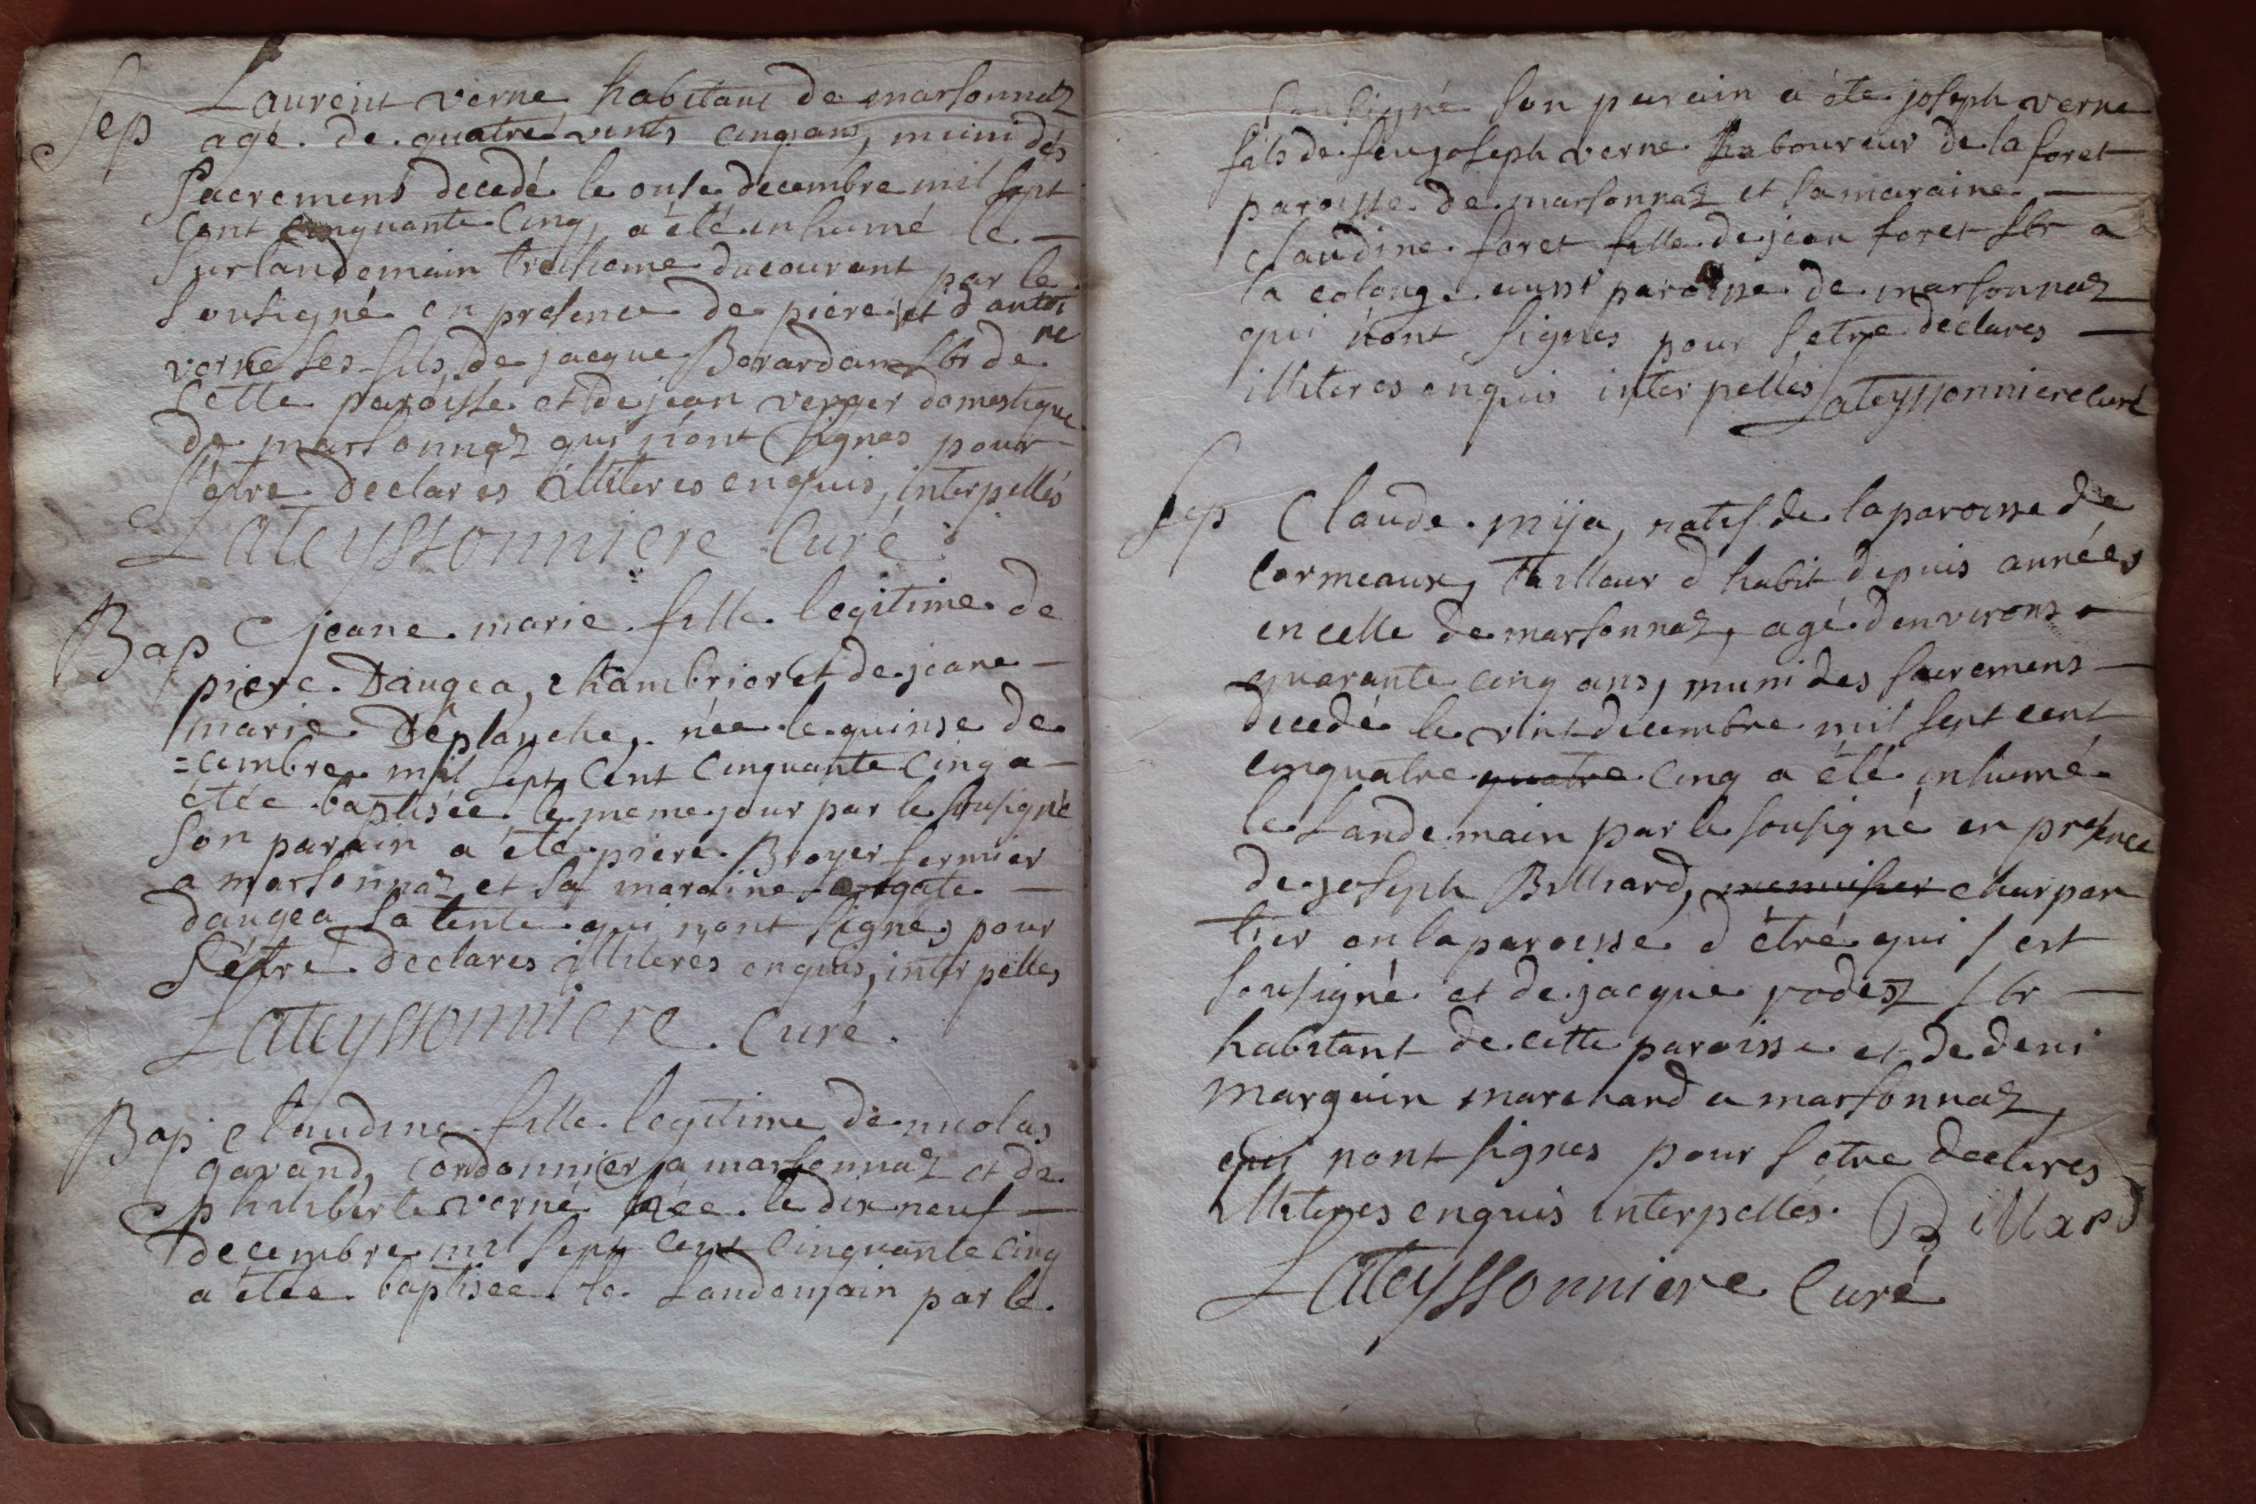 Sep Laurent verne habitant de marsonnaz
agé de quatre vints cinq ans, muni des
sacremens decedé le onse decembre mil sept
cent cinquante cinq, a été inhumé le
surlandemain treisieme du courant par le
sousigné en presence de piere et d'antoi
ne
verne ses fils, de jacque Berardan lbr de
cette paroisse et de jean verger domestique
de marsonnaz qui n'ont signes pour
s'être declares illiteres enquis, interpellés
Lateyssonniere Curé
Bap jeane marie fille legitime de
piere Daugea, chambrier et de jeane
marie Deplanche, née le quinse de
=cembre mil sept cent cinquante cinq a
étée baptisée le meme jour par le sousigné
son parain a été piere Broyer fermier
a marsonnaz et sa maraine agate
daugea sa tente qui n'ont signés pour
s'être declares illiterés enquis, interpelles
Lateyssonniere Curé.
Bap claudine fille legitime de nicolas
gavand, cordonnier a marsonnaz et de
philiberte verne née le dix neuf
decembre mil sept cent cinquante cinq
a étée baptisee le landemain par le
sousigné son parain a été joseph verne
fils de feu joseph verne laboureur de la foret
paroisse de marsonnaz et sa maraine
claudine foret fille de jean foret lbr a
la colonge aussi paroisse de marsonnaz
qui n'ont signes pour s'etre declares
illiteres enquis interpellés Lateyssonniere curé
Sep Claude mija, natif de la paroisse de
cormeaux, tailleur d'habit depuis années
en celle de marsonnaz, agé d'environs
quarante cinq ans, muni des sacremens
decedé le vint decembre mil sept cent
cinquatre quatre cinq a été inhumé
le landemain par le sousigné en presence
de joseph Billiard, menuisier charpan
tier en la paroisse d'étré qui s'est
sousigné et de jacque rodez lbr
habitant de cette paroisse et de deni
marguin marchand a marsonnaz
qui n'ont signes pour s'etre declares
illiteres enquis interpellés. Billard
Lateyssonniere Curé